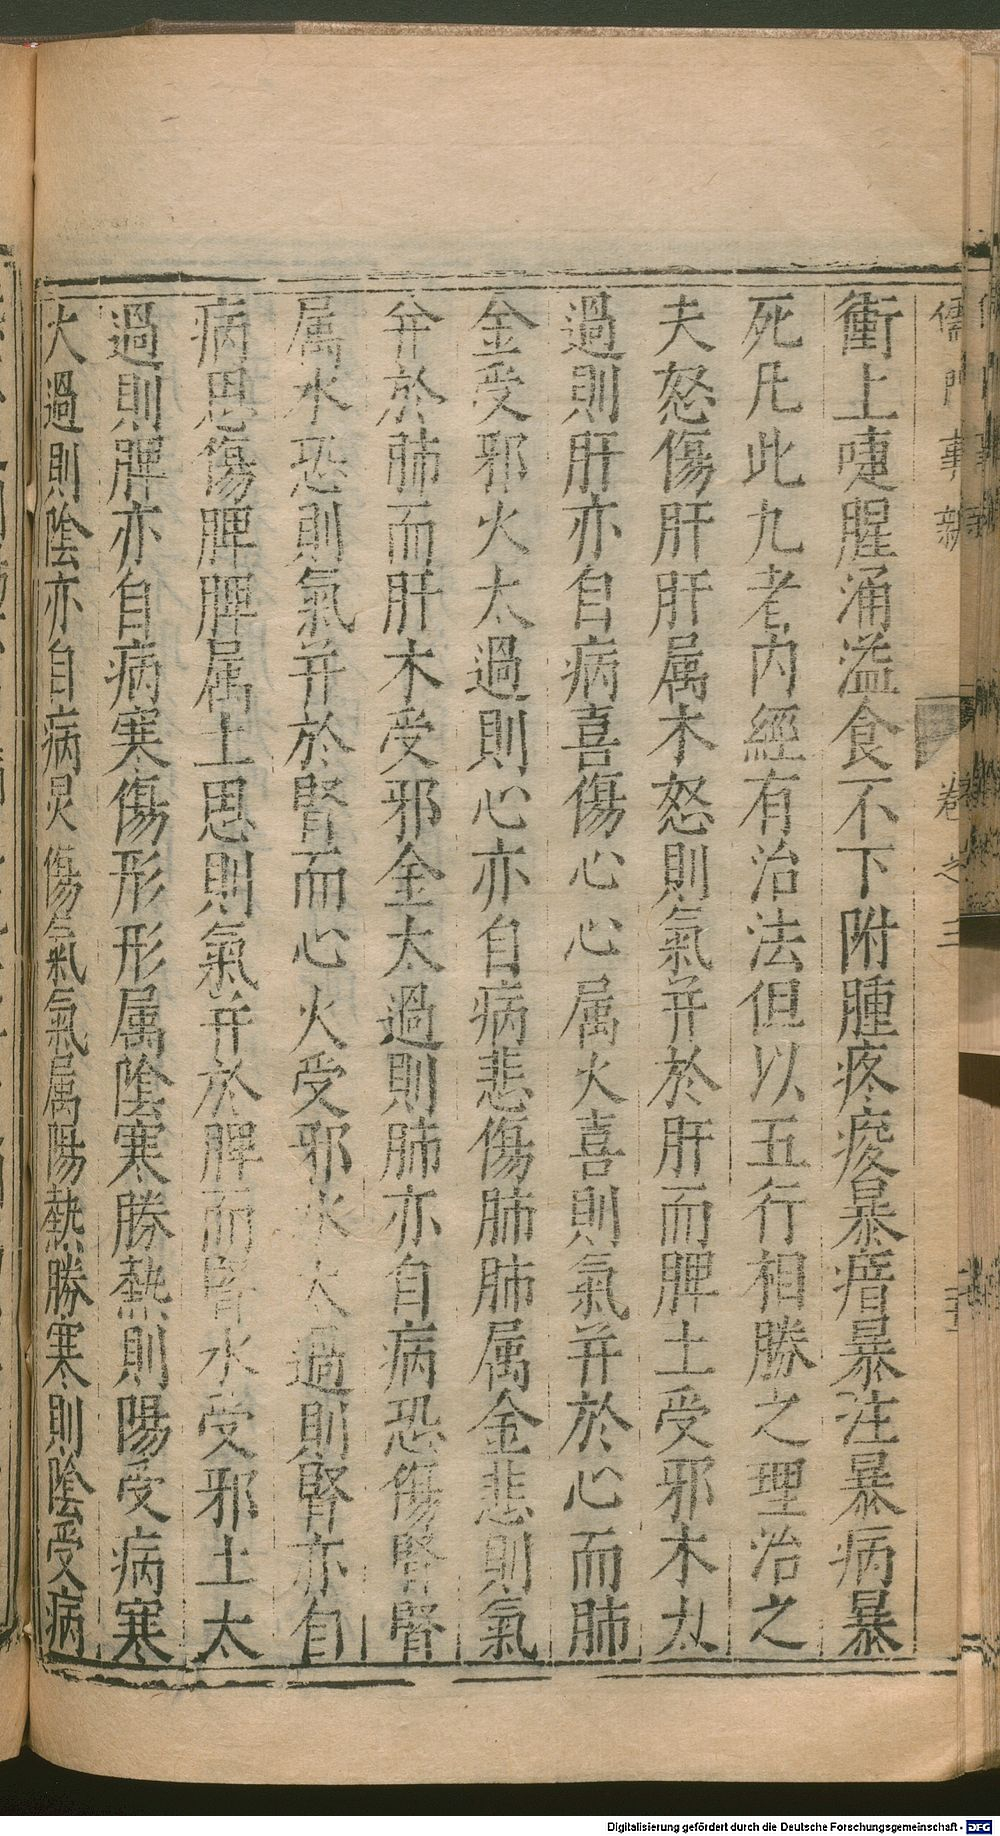 儒門事親
卷之三
衝上嚏腥涌溢食不下附腫疼痠暴瘖暴注暴病暴
死凡此九者內經有治法但以五行相勝之理治之
夫怒傷肝肝属木怒則氣并於肝而脾土受邪木太
過則肝亦自病喜傷心心属火喜則氣并於心而肺
金受邪火太過則心亦自病悲傷肺肺属金悲則氣
并於肺而肝木受邪金太過則肺亦自病恐傷腎腎
属水恐則氣并於腎而心火受邪水太過則腎亦自
病思傷脾脾属土思則氣并於脾而腎水受邪土太
過則脾亦自病寒傷形形属陰寒勝熱則陽受病寒
太過則陰亦自病炅傷氣氣属陽熱勝寒則陰受病
Digitalisierung gefördert durch die Deutsche Forschungsgemeinschaft - DFG